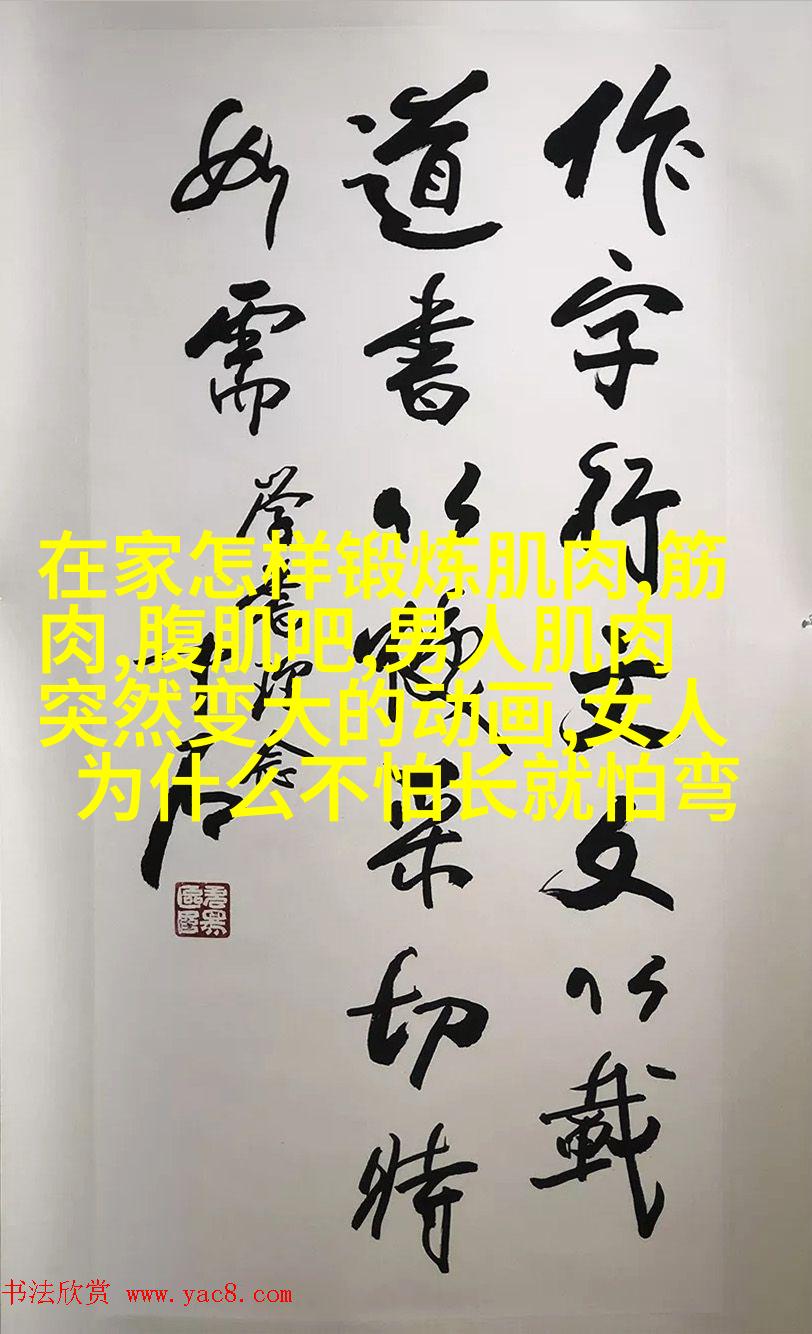 作字行文文以載
道書以焕采切時
如需
学書理念
在家怎样锻炼肌肉,筋
肉,腹肌吧,男人肌肉
突然变大的动画,女人
为什么不怕长就怕弯
书法欣赏 www.yac8.com